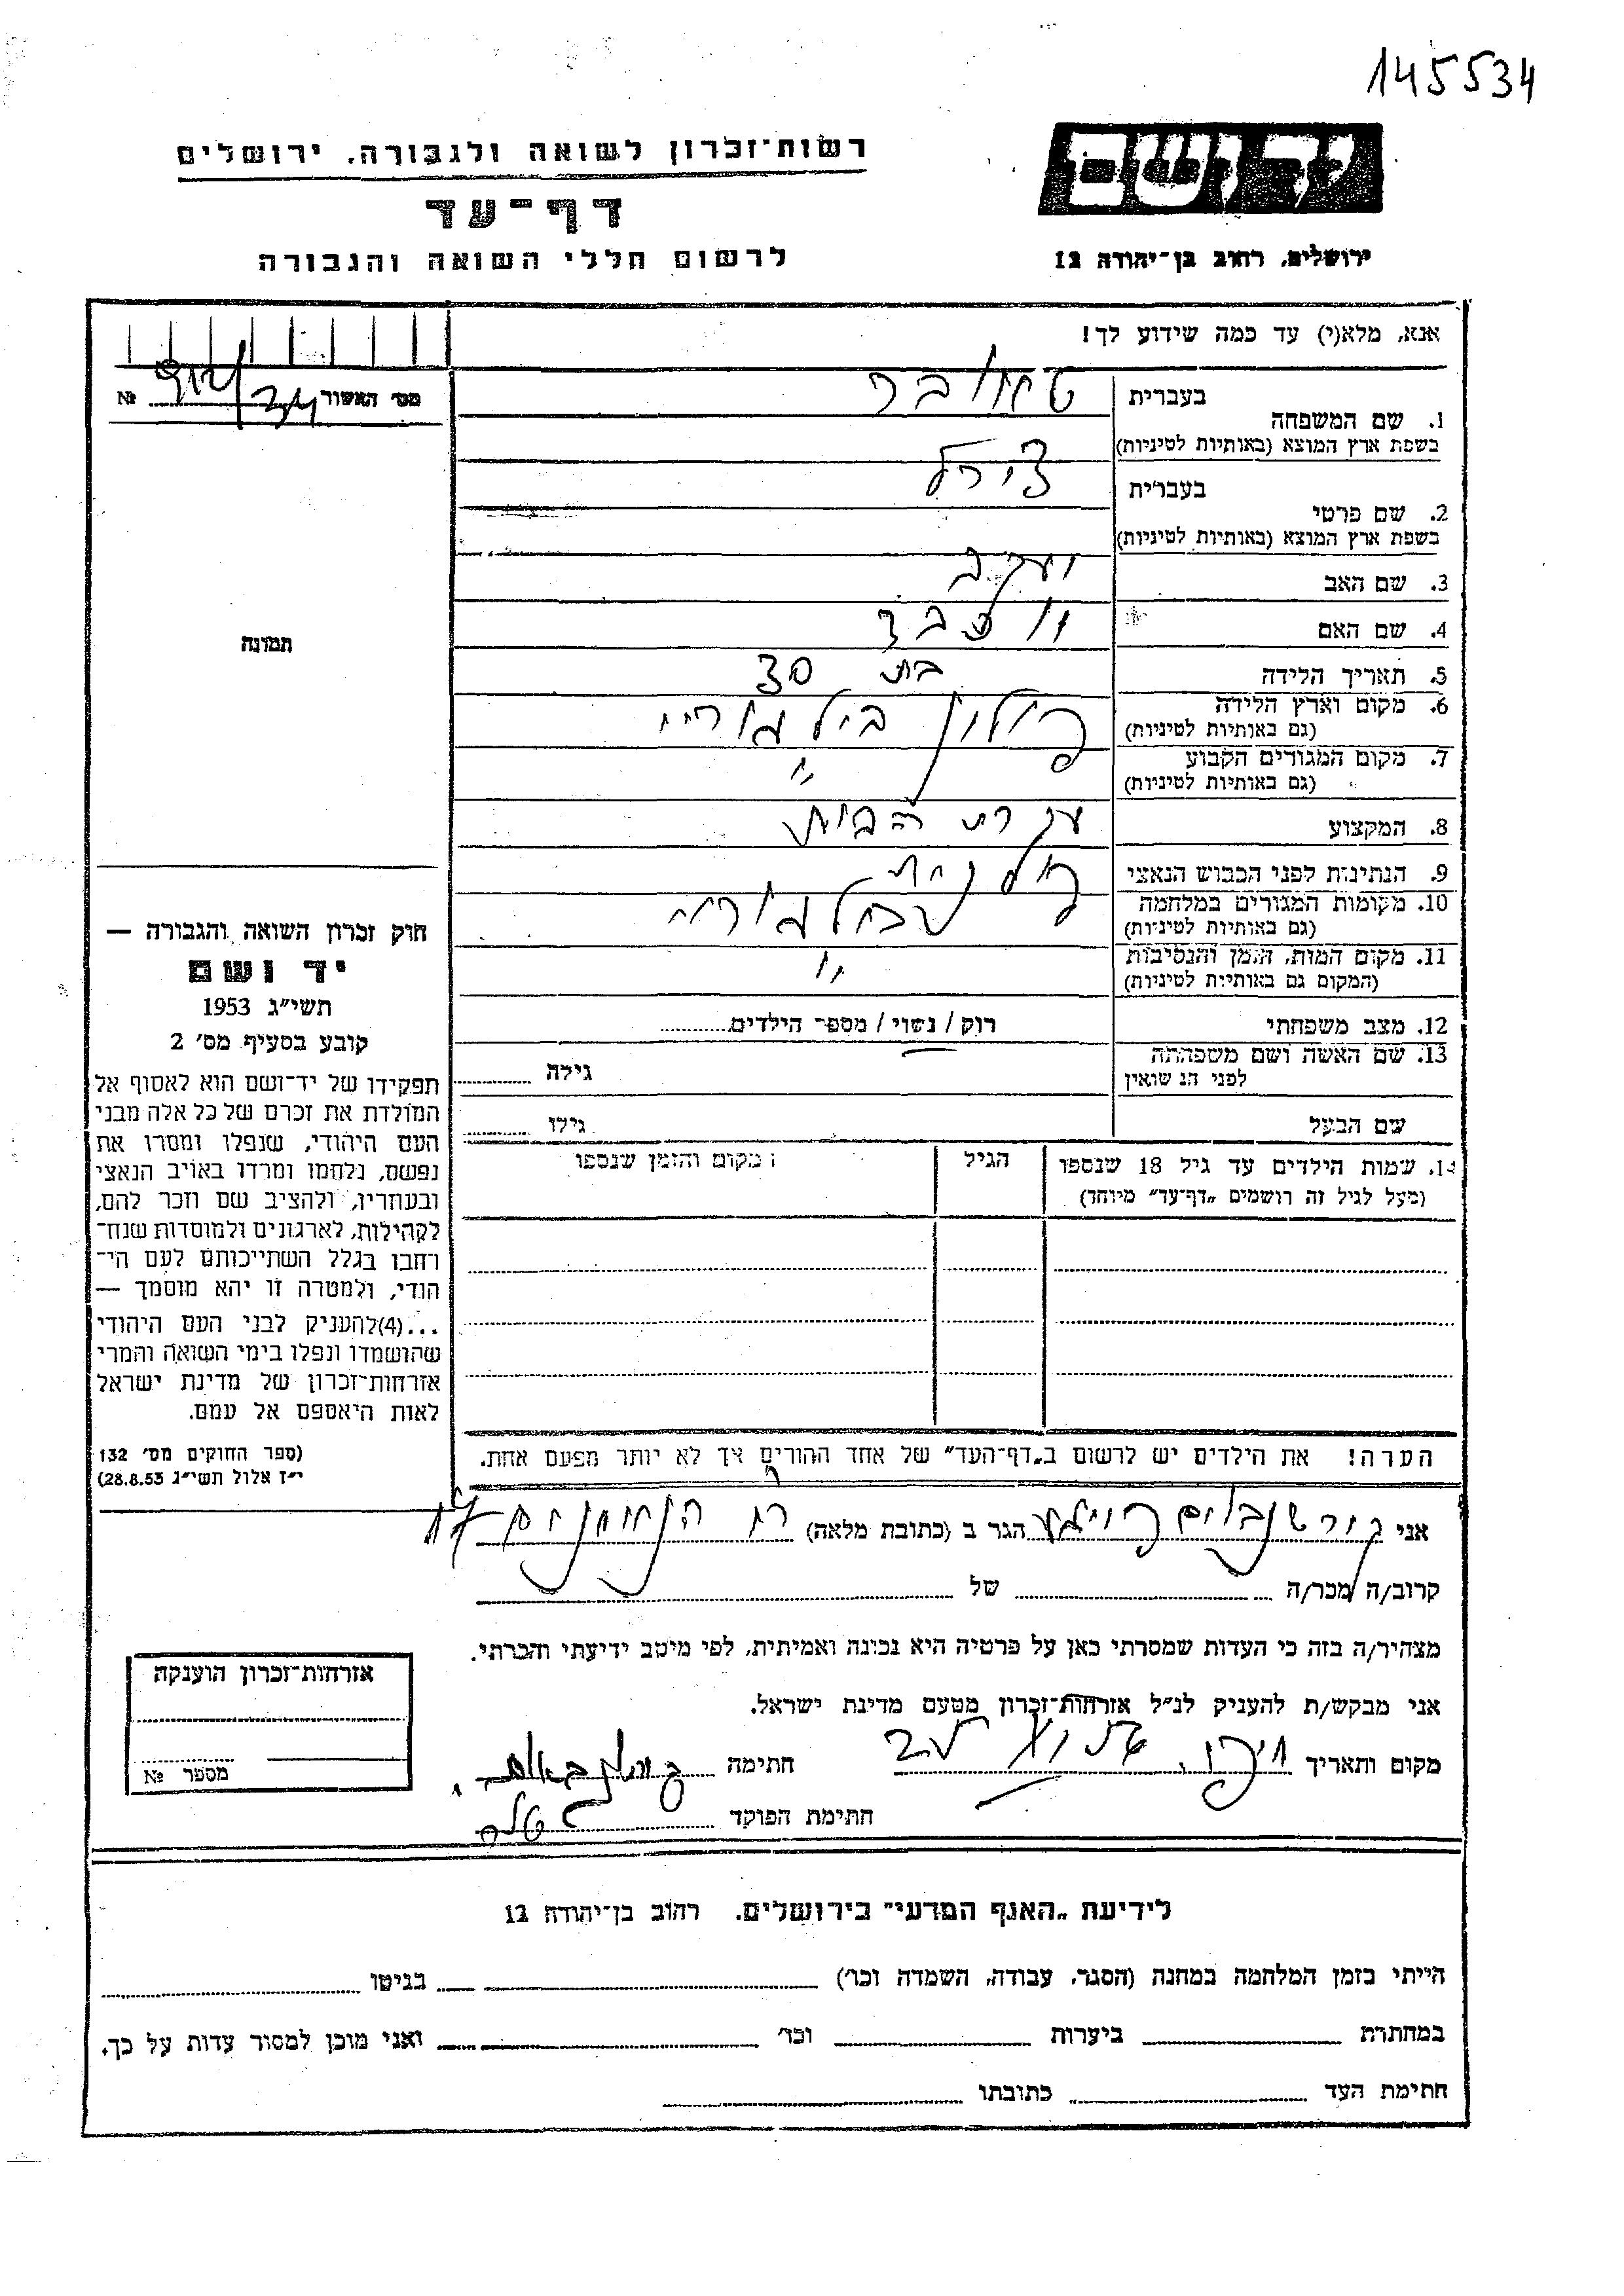 145534
יד ושם
רשות־זכרון לשואה ולגבורה, ירושלים
דף־עד
ירושלים, רחוב בן־יהודה 12
לרשום חללי השואה והגבורה
אנא, מלא(י) עד כמה שידוע לך!
מס׳ האשור № 912/34
בעברית
1. שם המשפחה
בשפת ארץ המוצא (באותיות לטיניות)
בעברית צירל
2. שם פרטי
בשפת ארץ המוצא (באותיות לטיניות)
3. שם האב יעקב
4. שם האם
5. תאריך הלידה בת 30
6. מקום וארץ הלידה פולין בילגוריי
(גם באותיות לטיניות)
7. מקום המגורים הקבוע "
(גם באותיות לטיניות)
8. המקצוע עקרת הבית
9. הנתינות לפני הכבוש הנאצי פולנית
10. מקומות המגורים במלחמה בילגוריי
(גם באותיות לטיניות)
11. מקום המות, הזמן והנסיבות "
(המקום גם באותיות לטיניות)
12. מצב משפחתי רווק / נשוי / מספר הילדים
13. שם האשה ושם משפחתה
לפני הנשואין גילה
שם הבעל גילו
14. שמות הילדים עד גיל 18 שנספו הגיל מקום והזמן שנספו
(מעל לגיל זה רושמים „דף־עד״ מיוחד)
הערה! את הילדים יש לרשום ב„דף־העד״ של אחד ההורים אך לא יותר מפעם אחת.
תמונה
חוק זכרון השואה והגבורה —
יד ושם
תשי״ג 1953
קובע בסעיף מס׳ 2
תפקידו של יד־ושם הוא לאסוף אל
המולדת את זכרם של כל אלה מבני
העם היהודי, שנפלו ומסרו את
נפשם, נלחמו ומרדו באויב הנאצי
ובעוזריו, ולהציב שם וזכר להם,
לקהילות, לארגונים ולמוסדות שנח־
רחבו בגלל השתייכותם לעם הי־
הודי, ולמטרה זו יהא מוסמך —
...(4)להעניק לבני העם היהודי
שהושמדו ונפלו בימי השואה והמרי
אזרחות־זכרון של מדינת ישראל
לאות היאספם אל עמם.
(ספר החוקים מס׳ 132
י״ז אלול תשי״ג 28.8.53)
אני קורשנבוים הגר ב (כתובת מלאה) 17
קרוב/ה מכר/ה של
מצהיר/ה בזה כי העדות שמסרתי כאן על פרטיה היא נכונה ואמיתית, לפי מיטב ידיעתי והכרתי.
אני מבקש/ת להעניק לנ״ל אזרחות־זכרון מטעם מדינת ישראל.
מקום ותאריך חתימה
חתימת הפוקד
אזרחות־זכרון הוענקה
מספר №
לידיעת „האגף המדעי״ בירושלים, רחוב בן־יהודה 12
הייתי בזמן המלחמה במחנה (הסגר, עבודה, השמדה וכו׳) בגיטו
במחתרת ביערות וכו׳ ואני מוכן למסור עדות על כך.
חתימת העד כתובתו